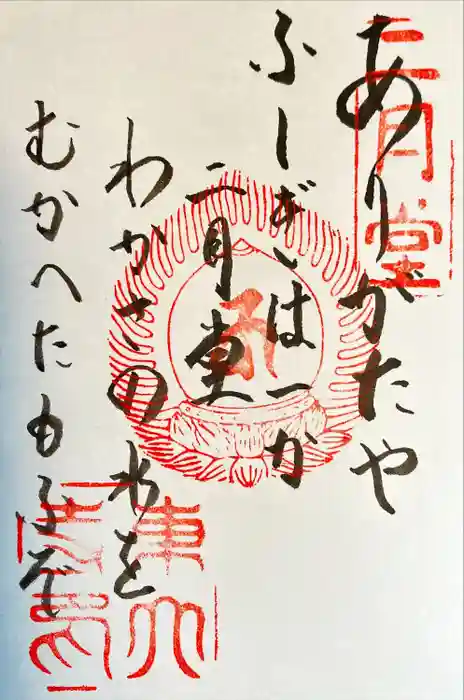 二月堂
ありがたや
ふしぎは一か
二月堂
わかさの水を
むかへたもうぞ
東大